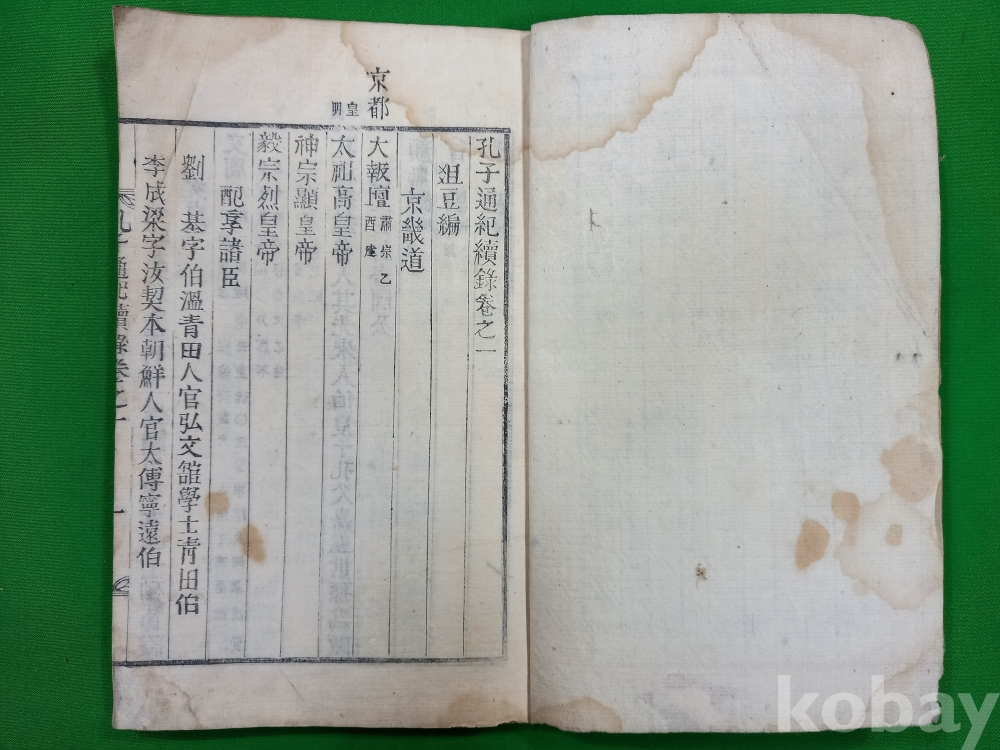 孔子通紀續錄卷之一
俎豆編
京畿道
京都
大報壇 肅宗乙酉建
皇明
太祖高皇帝
神宗顯皇帝
毅宗烈皇帝
配享諸臣
劉基字伯溫青田人官弘文館學士靑田伯
李成梁字汝契本朝鮮人官太傅寧遠伯
孔子通紀續錄卷之一 一
kobay